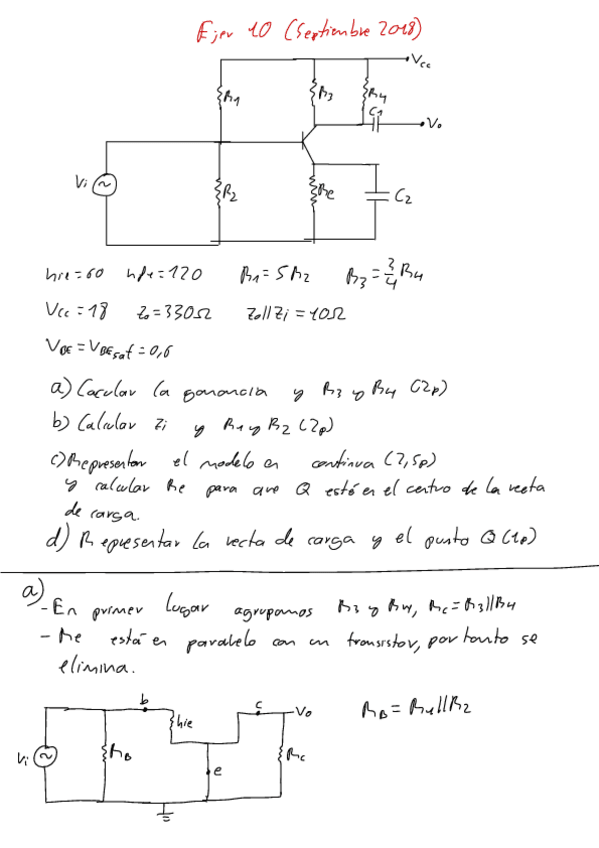 Ejer 10 (Septiembre 2018)
Vcc
R1
R3
R4
C1
Vo
Vi
R2
Re
C2
hie=60 hfe=120 R1=5R2 R3=3/4R4
Vcc=18 Zo=330Ω Zo//Zi=10Ω
VBE=VBEsat=0,6
a) Cacular la ganancia y R3 y R4 (2p)
b) Calcular Zi y R1 y R2 (2p)
c) Representar el modelo en continua (2,5p)
y calcular Re para que Q esté en el centro de la recta
de carga.
d) Representar la recta de carga y el punto Q (1p)
a)
- En primer lugar agrupamos R3 y R4, Rc=R3//R4
- Re está en paralelo con un transistor, por tanto se
elimina.
b
c
Vo
RB=R1//R2
hie
Vi
RB
e
Rc